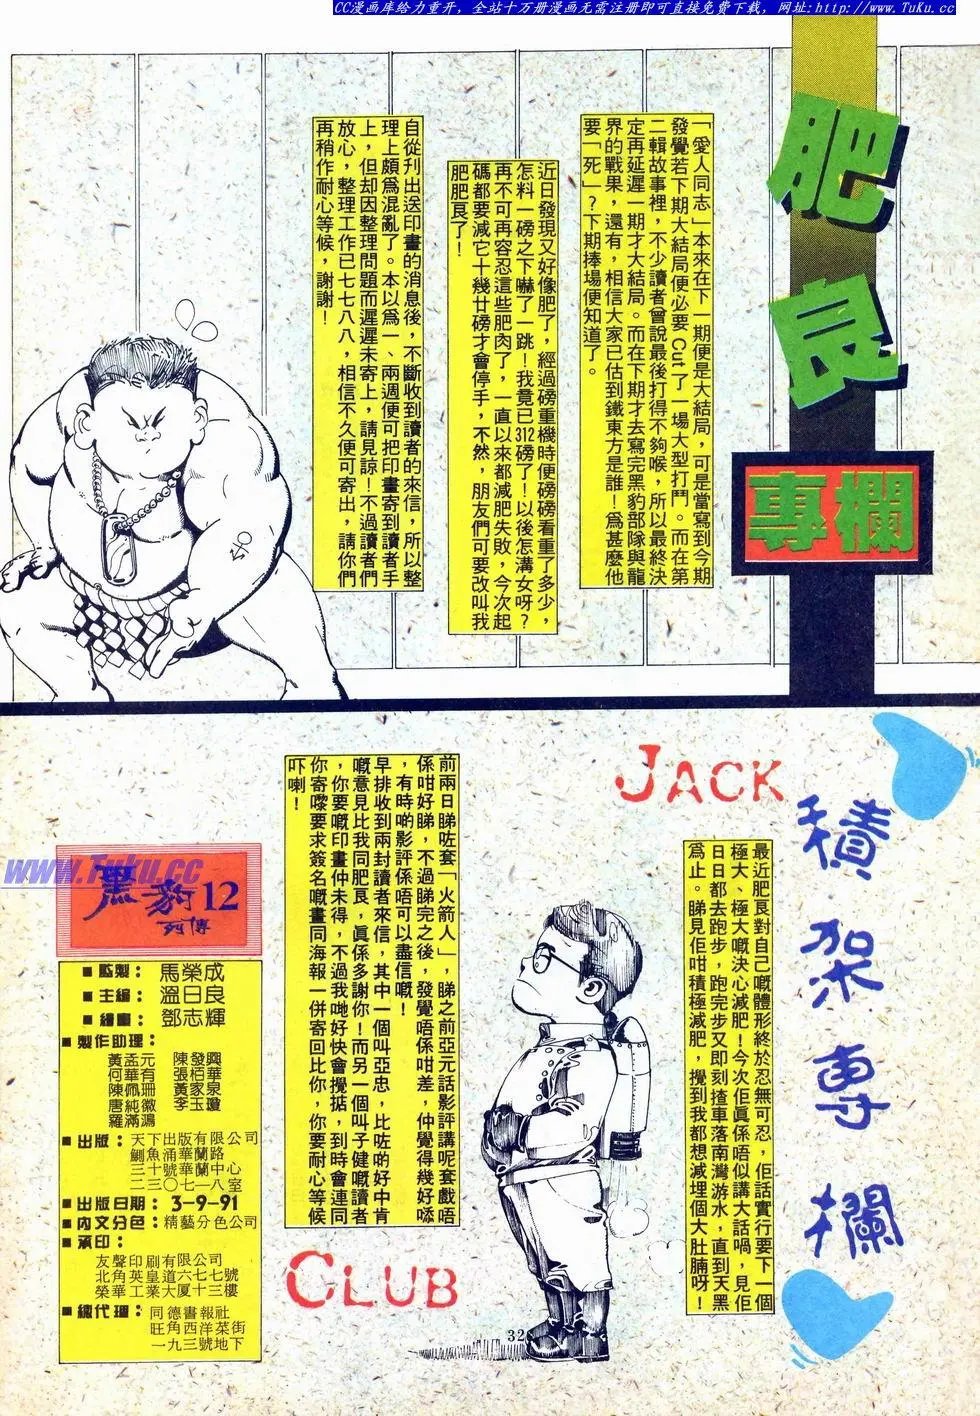 CC漫画库给力重开，全站十万册漫画无需注册即可直接免费下载，网址:http://www.TuKu.cc
肥良
專欄
「愛人同志」本來在下一期便是大結局，可是當寫到今期
發覺若下期大結局便必要Cut了一場大型打鬥。而在第
二輯故事裡，不少讀者曾說最後打得不夠喉，所以最終決
定再延遲一期才大結局。而在下期才去寫完黑豹部隊與龍
界的戰果，還有，相信大家已估到鐵東方是誰！爲甚麼他
要「死」？下期捧場便知道了。
近日發現又好像肥了，經過磅重機時便磅磅看重了多少，
怎料一磅之下嚇了一跳！我竟已312磅了！以後怎溝女呀？
再不可再容忍這些肥肉了，一直以來都減肥失敗，今次起
碼都要減它十幾廿磅才會停手，不然，朋友們可要改叫我
肥肥良了！
自從刋出送印畫的消息後，不斷收到讀者的來信，所以整
理上頗爲混亂了。本以爲一、兩週便可把印畫寄到讀者手
上，但却因整理問題而遲遲未寄上，請見諒！不過讀者們
放心，整理工作已七七八八，相信不久便可寄出，請你們
再稍作耐心等候，謝謝！
JACK
積架專欄
最近肥良對自己嘅體形終於忍無可忍，佢話實行要下一個
極大、極大嘅決心減肥！今次佢眞係唔似講大話喎，見佢
日日都去跑步，跑完步又即刻揸車落南灣游水，直到天黑
爲止。睇見佢咁積極減肥，攪到我都想減埋個大肚腩呀！
前兩日睇咗套「火箭人」，睇之前亞元話影評講呢套戲唔
係咁好睇，不過睇完之後，發覺唔係咁差，仲覺得幾好㗎
，有時啲影評係唔可以盡信嘅！
早排收到兩封讀者來信，其中一個叫亞忠，比咗啲好中肯
嘅意見比我同肥良，眞係多謝你！而另一個叫子健嘅讀者
，你要嘅印畫仲未得，不過我哋好快會攪掂，到時會連同
你寄嚟要求簽名嘅畫同海報一併寄回比你，你要耐心等候
吓喇！
CLUB
www.Tuku.cc
黑豹列傳 12
■監製：馬榮成
■主編：溫日良
■繪畫：鄧志輝
■製作助理：
黃孟元 陳發興
何華有 張栢華
陳佩珊 黃家泉
唐純徽 李玉瓊
羅滿鴻
■出版：天下出版有限公司
鰂魚涌華蘭路
三十號華蘭中心
二三○七—八室
■出版日期：3-9-91
■內文分色：精藝分色公司
■承印：
友聲印刷有限公司
北角英皇道六七七號
榮華工業大厦十三樓
■總代理：同德書報社
旺角西洋菜街
一九三號地下
32